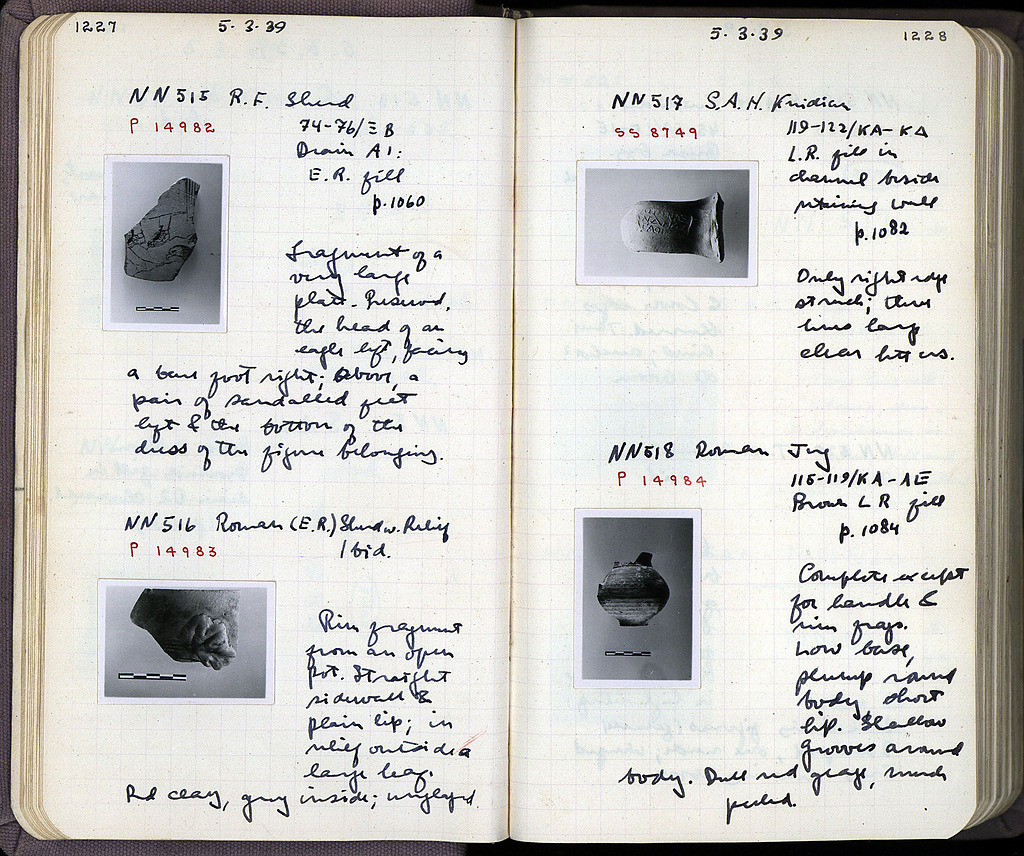 1227
5·3·39
NN515 R.F. Sherd
P 14982
74-76/ΞB
Drain A1:
E.R. fill
p.1060
Fragment of a
very large
plate. Preserved,
the head of an
eagle left, facing
a bare foot right; above, a
pair of sandalled feet
left & the bottom of the
dress of the figure belonging.
NN516 Roman (E.R.) Sherd w. Relief
P 14983
Ibid.
Rim fragment
from an open
pot. Straight
sidewall &
plain lip; in
relief outside a
large leaf.
Red clay, grey inside; unglazed.
5·3·39
1228
NN517 S.A.H. Knidian
SS 8749
119-122/KA-KΔ
L.R. fill in
channel beside
retaining wall
p.1082
Only right edge
struck; three
lines large
clear letters.
NN518 Roman Jug
P 14984
115-119/KA-ΛE
Brown L.R. fill
p.1084
Complete except
for handle &
rim frags.
Low base,
plump round
body, short
lip. Shallow
grooves around
body. Dull red glaze, much
peeled.